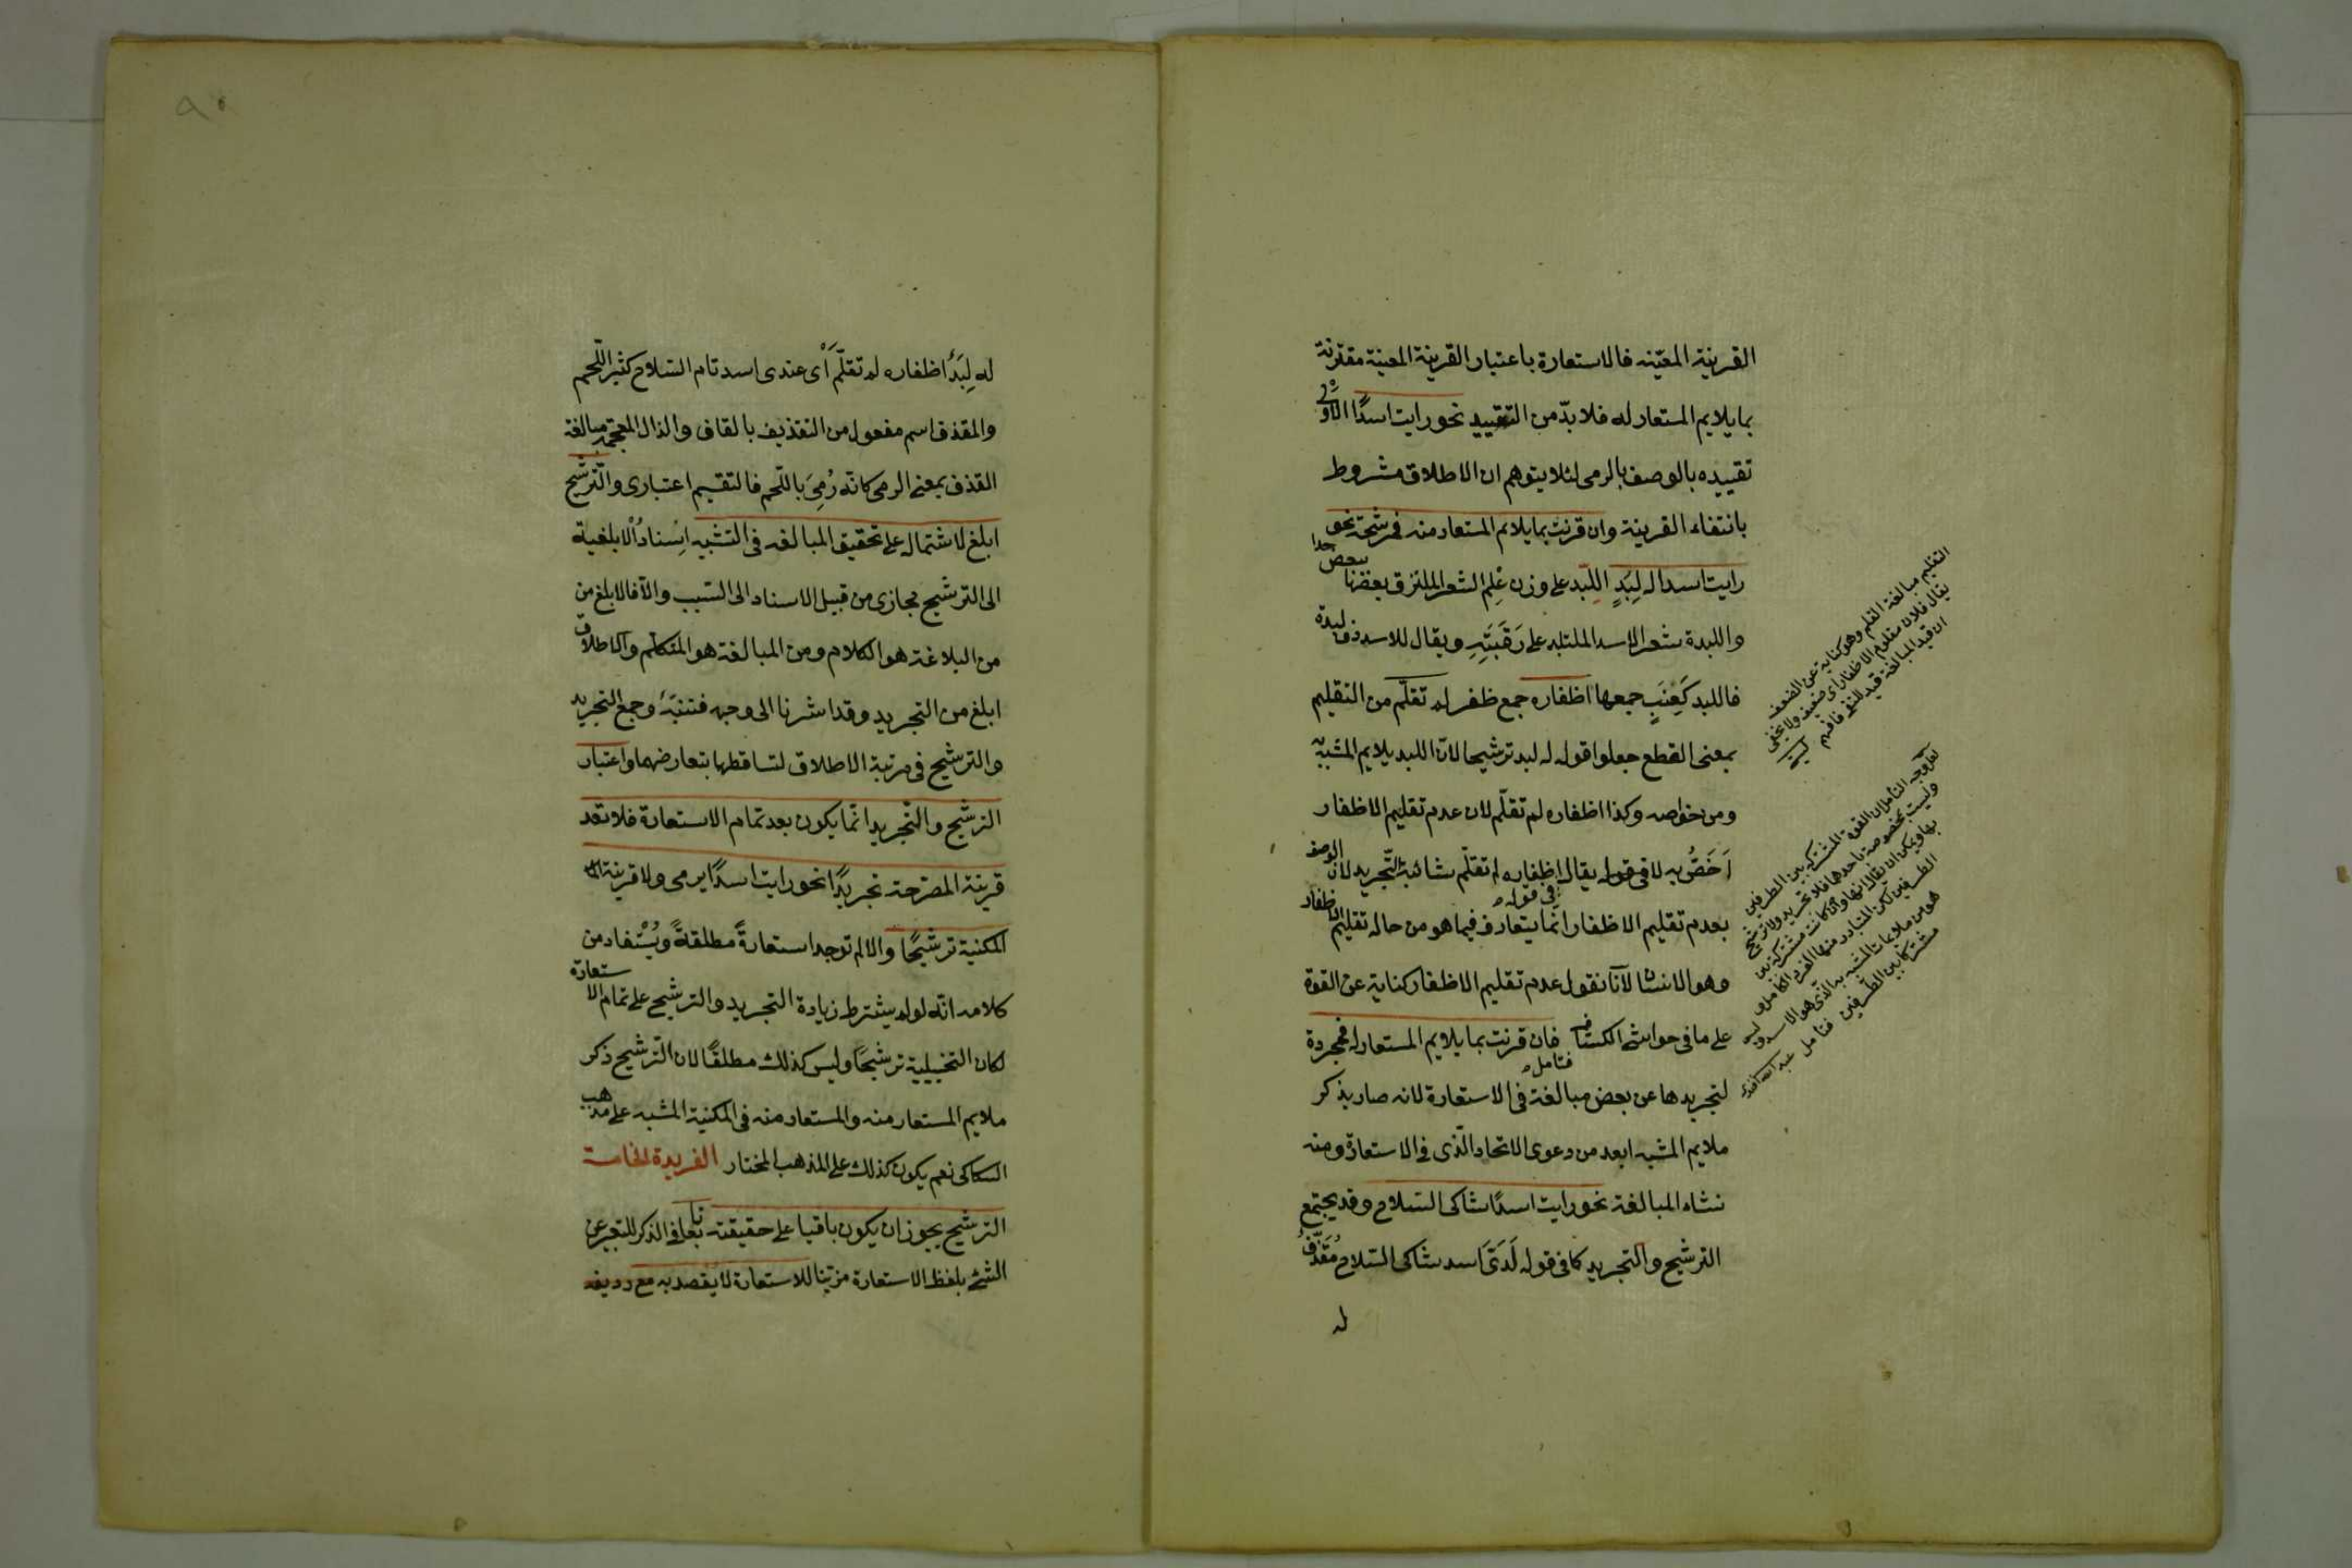 القرينة المعيّنه فالاستعارة باعتبار القرينة المعينة مقترنة
بما يلايم المستعار له فلا بدّ من التقييد نحو رايت اسدًا الاولى
تقييده بالوصف بالرمى لئلا يتوهم ان الاطلاق مشروط
بانتفاء القرينة وان قرنت بما يلائم المستعار منه فمرشحة نحو
رايت اسدا له لِبَدٍ اللِبَد على وزن عِلم الشعر الملتزق بعضها ببعض
واللبدة شعر الاسد الملتبد على رَقَبَتِهِ ويقال للاسد ذو لبدة
فاللبد كَعِنَبٍ جمعها اظفاره جمع ظفر لم تقلّم من التقليم
بمعنى القطع جعلوا قوله له لبد ترشيحا لانّ اللبد يلايم المشبه به
ومن خواصه وكذا اظفاره لم تقلّم لان عدم تقليم الاظفار
اَخَصُّ به لا فى قوله يقال اظفاره لم تقلّم شائبة التّجريد لانّ الوصف
فى قوله
بعدم تقليم الاظفار انما يتعارف فيما هو من حاله تقليم الاظفار
وهو الانسان لانّا نقول عدم تقليم الاظفار كناية عن القوة
على ما فى حواشى الكشاف فان قرنت بما يلايم المستعار له فمجردة
فتامل
لتجريدها عن بعض مبالغة فى الاستعارة لانه صار بذكر
ملايم المشبه ابعد من دعوى الاتحاد الّذى فى الاستعارة ومنه
نشاء المبالغة نحو رايت اسدًا شاكى السّلاح وقد يجتمع
الترشيح والتجريد كما فى قوله لَدَىَ اسد شاكى السّلاح مُقَذّفٌ
له
التقليم مبالغة القلم وهو كناية عن الضعف
يقال فلان مقلوم الاظفار اى ضعيف ولا يخفى
ان قيد المبالغة قيد للنفى فافهم
لعل وجه التأمل ان القوة المشتركة بين الطرفين
وليست بمخصوصة باحدهما فلا تجريد ولا ترشيح
بها ويمكن ان يقال انها وان كانت مشتركة بين
الطرفين لكن المتبادر منها الفرد الكامل
هو من ملايمات المشبه به الّذى هو الاسد وليس
مشتركا بين الطّرفين فتامل عبد الله
له لِبَدٌ اظفاره لم تقلّم اَىْ عندى اسد تام السّلاح كثير اللّحم
والمقذف اسم مفعول من التقذيف بالقاف والذال المعجمة مبالغة
القذف بمعنى الرمى كانّه رُمِىَ باللّحم فالتقسيم اعتبارى والتّرشيح
ابلغ لاشتماله على تحقيق المبالغه فى التشبيه اِسْنادُ الابلغية
الى الترشيح مجازى من قبيل الاسناد الى السّبب والّا فالابلغ من
من البلاغة هو الكلام ومن المبالغة هو المتكلم والاطلاق
ابلغ من التجريد وقد اشرنا الى وجهه فتنبّه وجمع التجريد
والترشيح فى مرتبة الاطلاق لتساقطها بتعارضهما واعتبار
الترشيح والتّجريد انّما يكون بعد تمام الاستعارة فلا تعد
قرينة المصرّحة تجريدًا نحو رايت اسدًا يرمى ولا قرينة
المكنية ترشيحًا والا لم توجد استعارةً مطلقةً ويُسْتفاد من
كلامه انّه لو لم يشترط زيادة التجريد والترشيح على تمام الاستعارة
لكان التخييلية ترشيحًا وليس كذلك مطلقًا لان التّرشيح ذكر
ملايم المستعار منه والمستعار منه فى المكنية المشبه على مذهب
السكاكى نعم يكون كذلك على المذهب المختار الفريدة الخامسة
الترشيح يجوز ان يكون باقيا على حقيقته تابعا فى الذكر للتعبير عن
الشئ بلفظ الاستعارة مزيّنا للاستعارة لا يقصد به مع رديفه